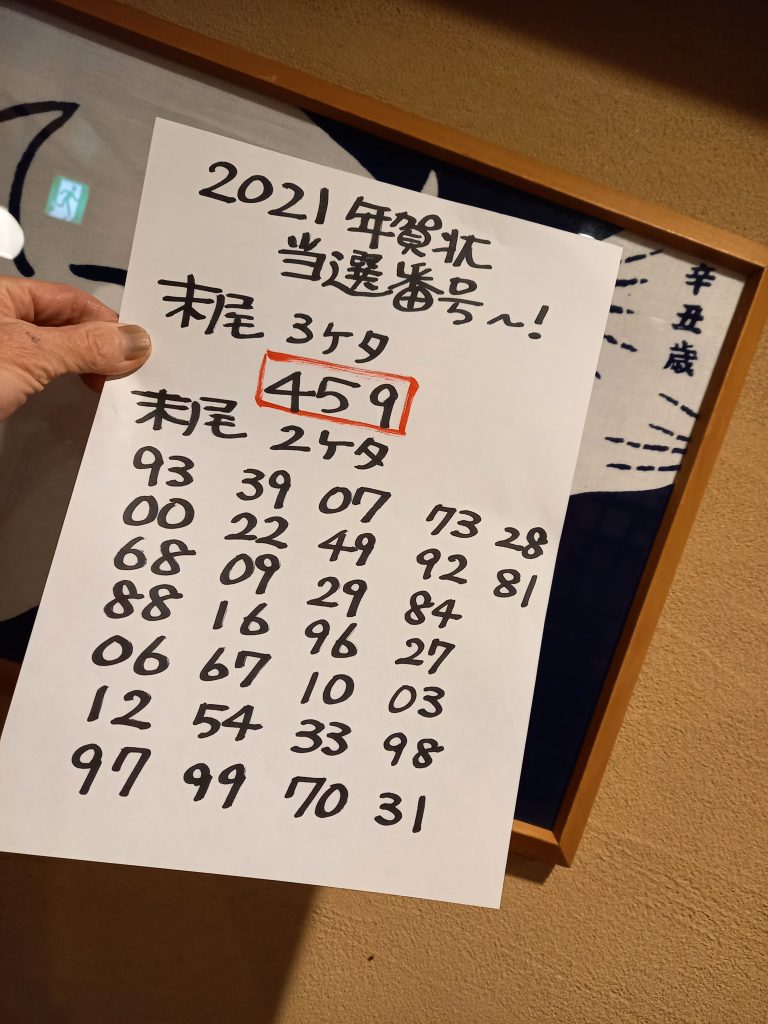 2021 年賀状
当選番号~!
末尾 3ケタ
459
末尾 2ケタ
93 39 07 73 28
00 22 49 92 81
68 09 29 84
88 16 96 27
06 67 10 03
12 54 33 98
97 99 70 31
辛丑歳